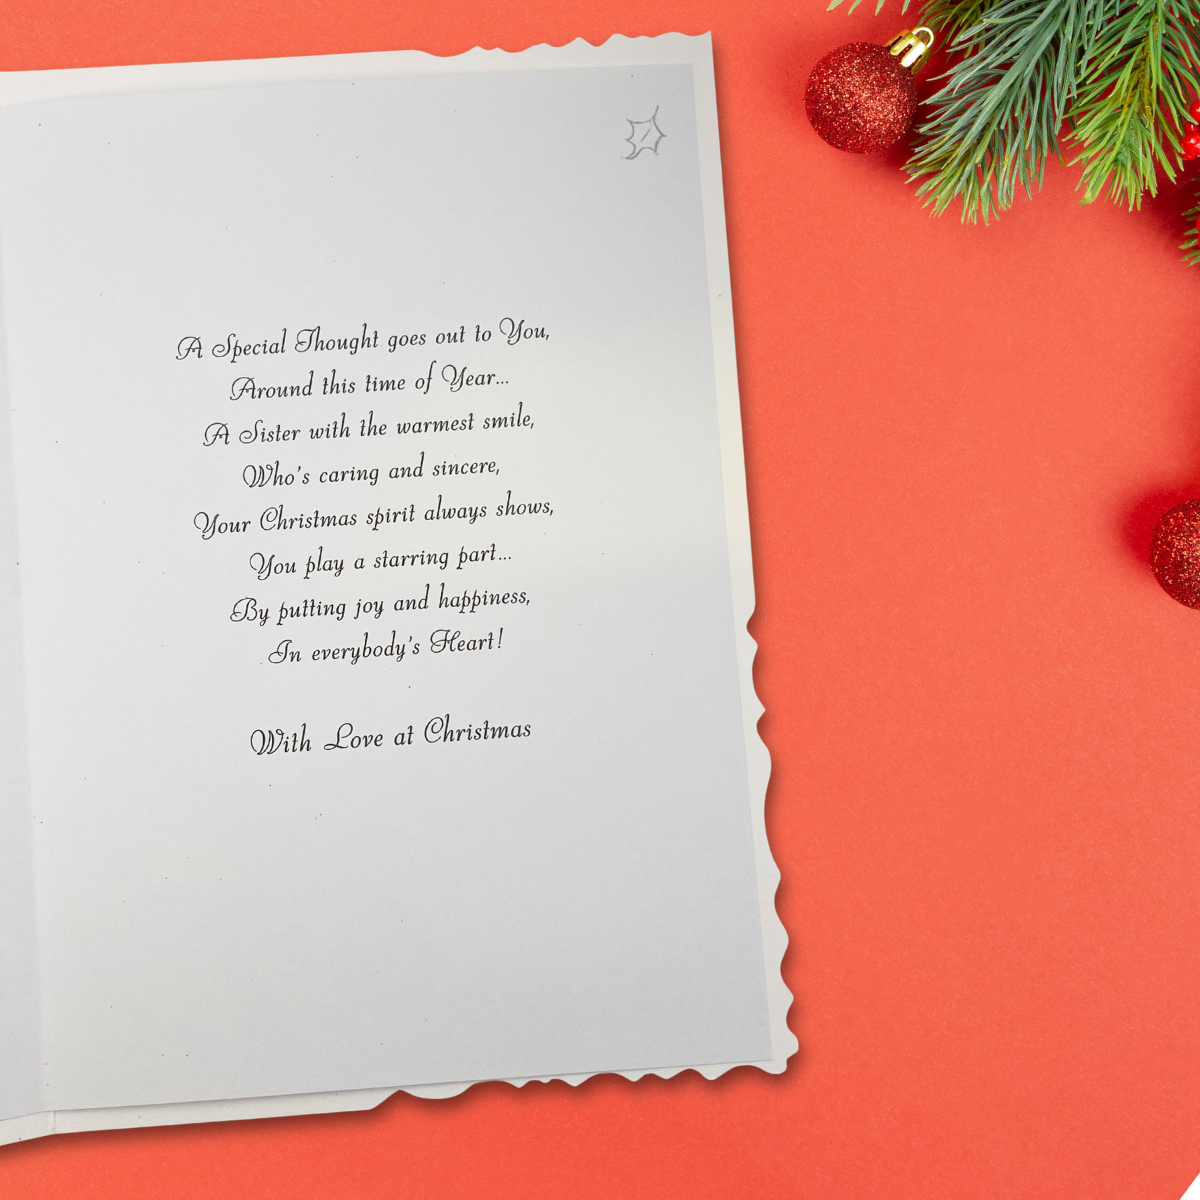 A Special Thought goes out to You,
Around this time of Year...
A Sister with the warmest smile,
Who's caring and sincere,
Your Christmas spirit always shows,
You play a starring part...
By putting joy and happiness,
In everybody's Heart!
With Love at Christmas